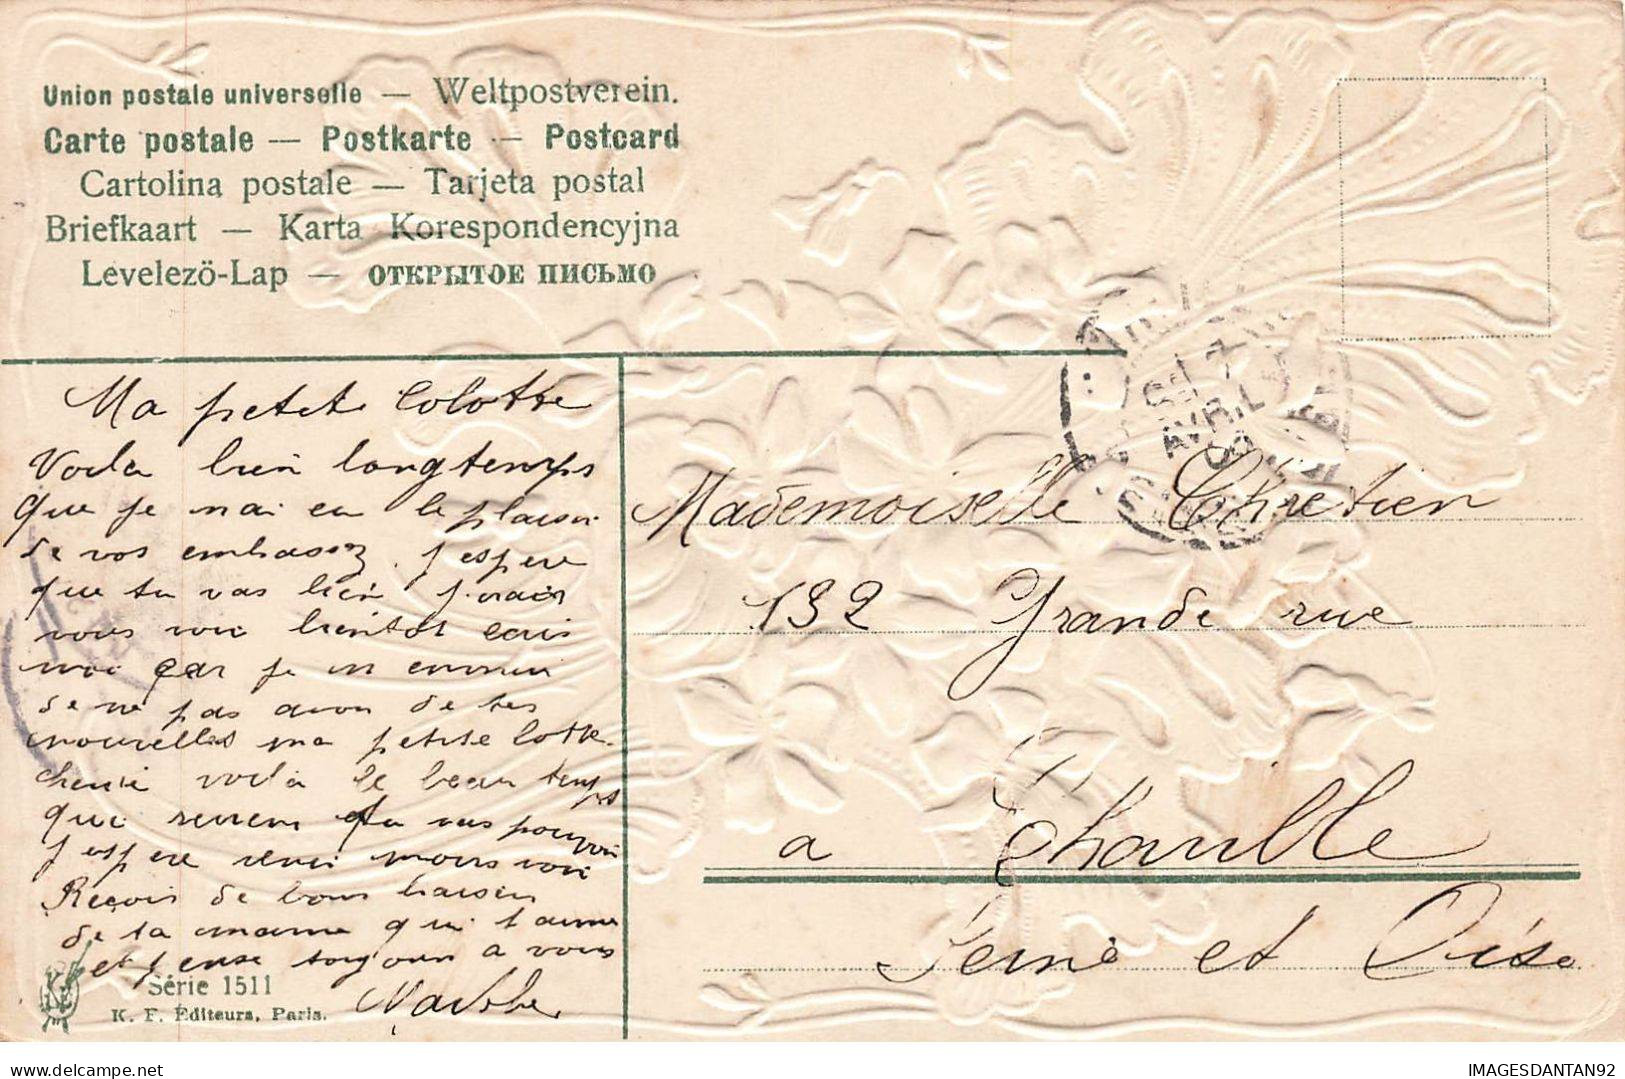 Union postale universelle — Weltpostverein.
Carte postale — Postkarte — Postcard
Cartolina postale — Tarjeta postal
Briefkaart — Karta Korespondencyjna
Levelező-Lap — ОТКРЫТОЕ ПИСЬМО
AVRIL
Ma petite Colotte
Voila bien longtemps
que je nai eu le plaisir
de vos embrassez. j'espere
que tu vas bien j'irais
vous voir bientot ecris
moi car je m ennui
de ne pas avoir de tes
nouvelles ma petite lotte
cherie voila le beau temps
que revient tu vas pouvoir
j espere venir nous voir
Reçois de bons baisers
de ta mame qui t aime
et pense toujour a vous
Série 1511
K. F. Éditeurs, Paris.
Mademoiselle Chretien
132 Grande rue
a Chaville
Seine et Oise
IMAGESDANTAN92